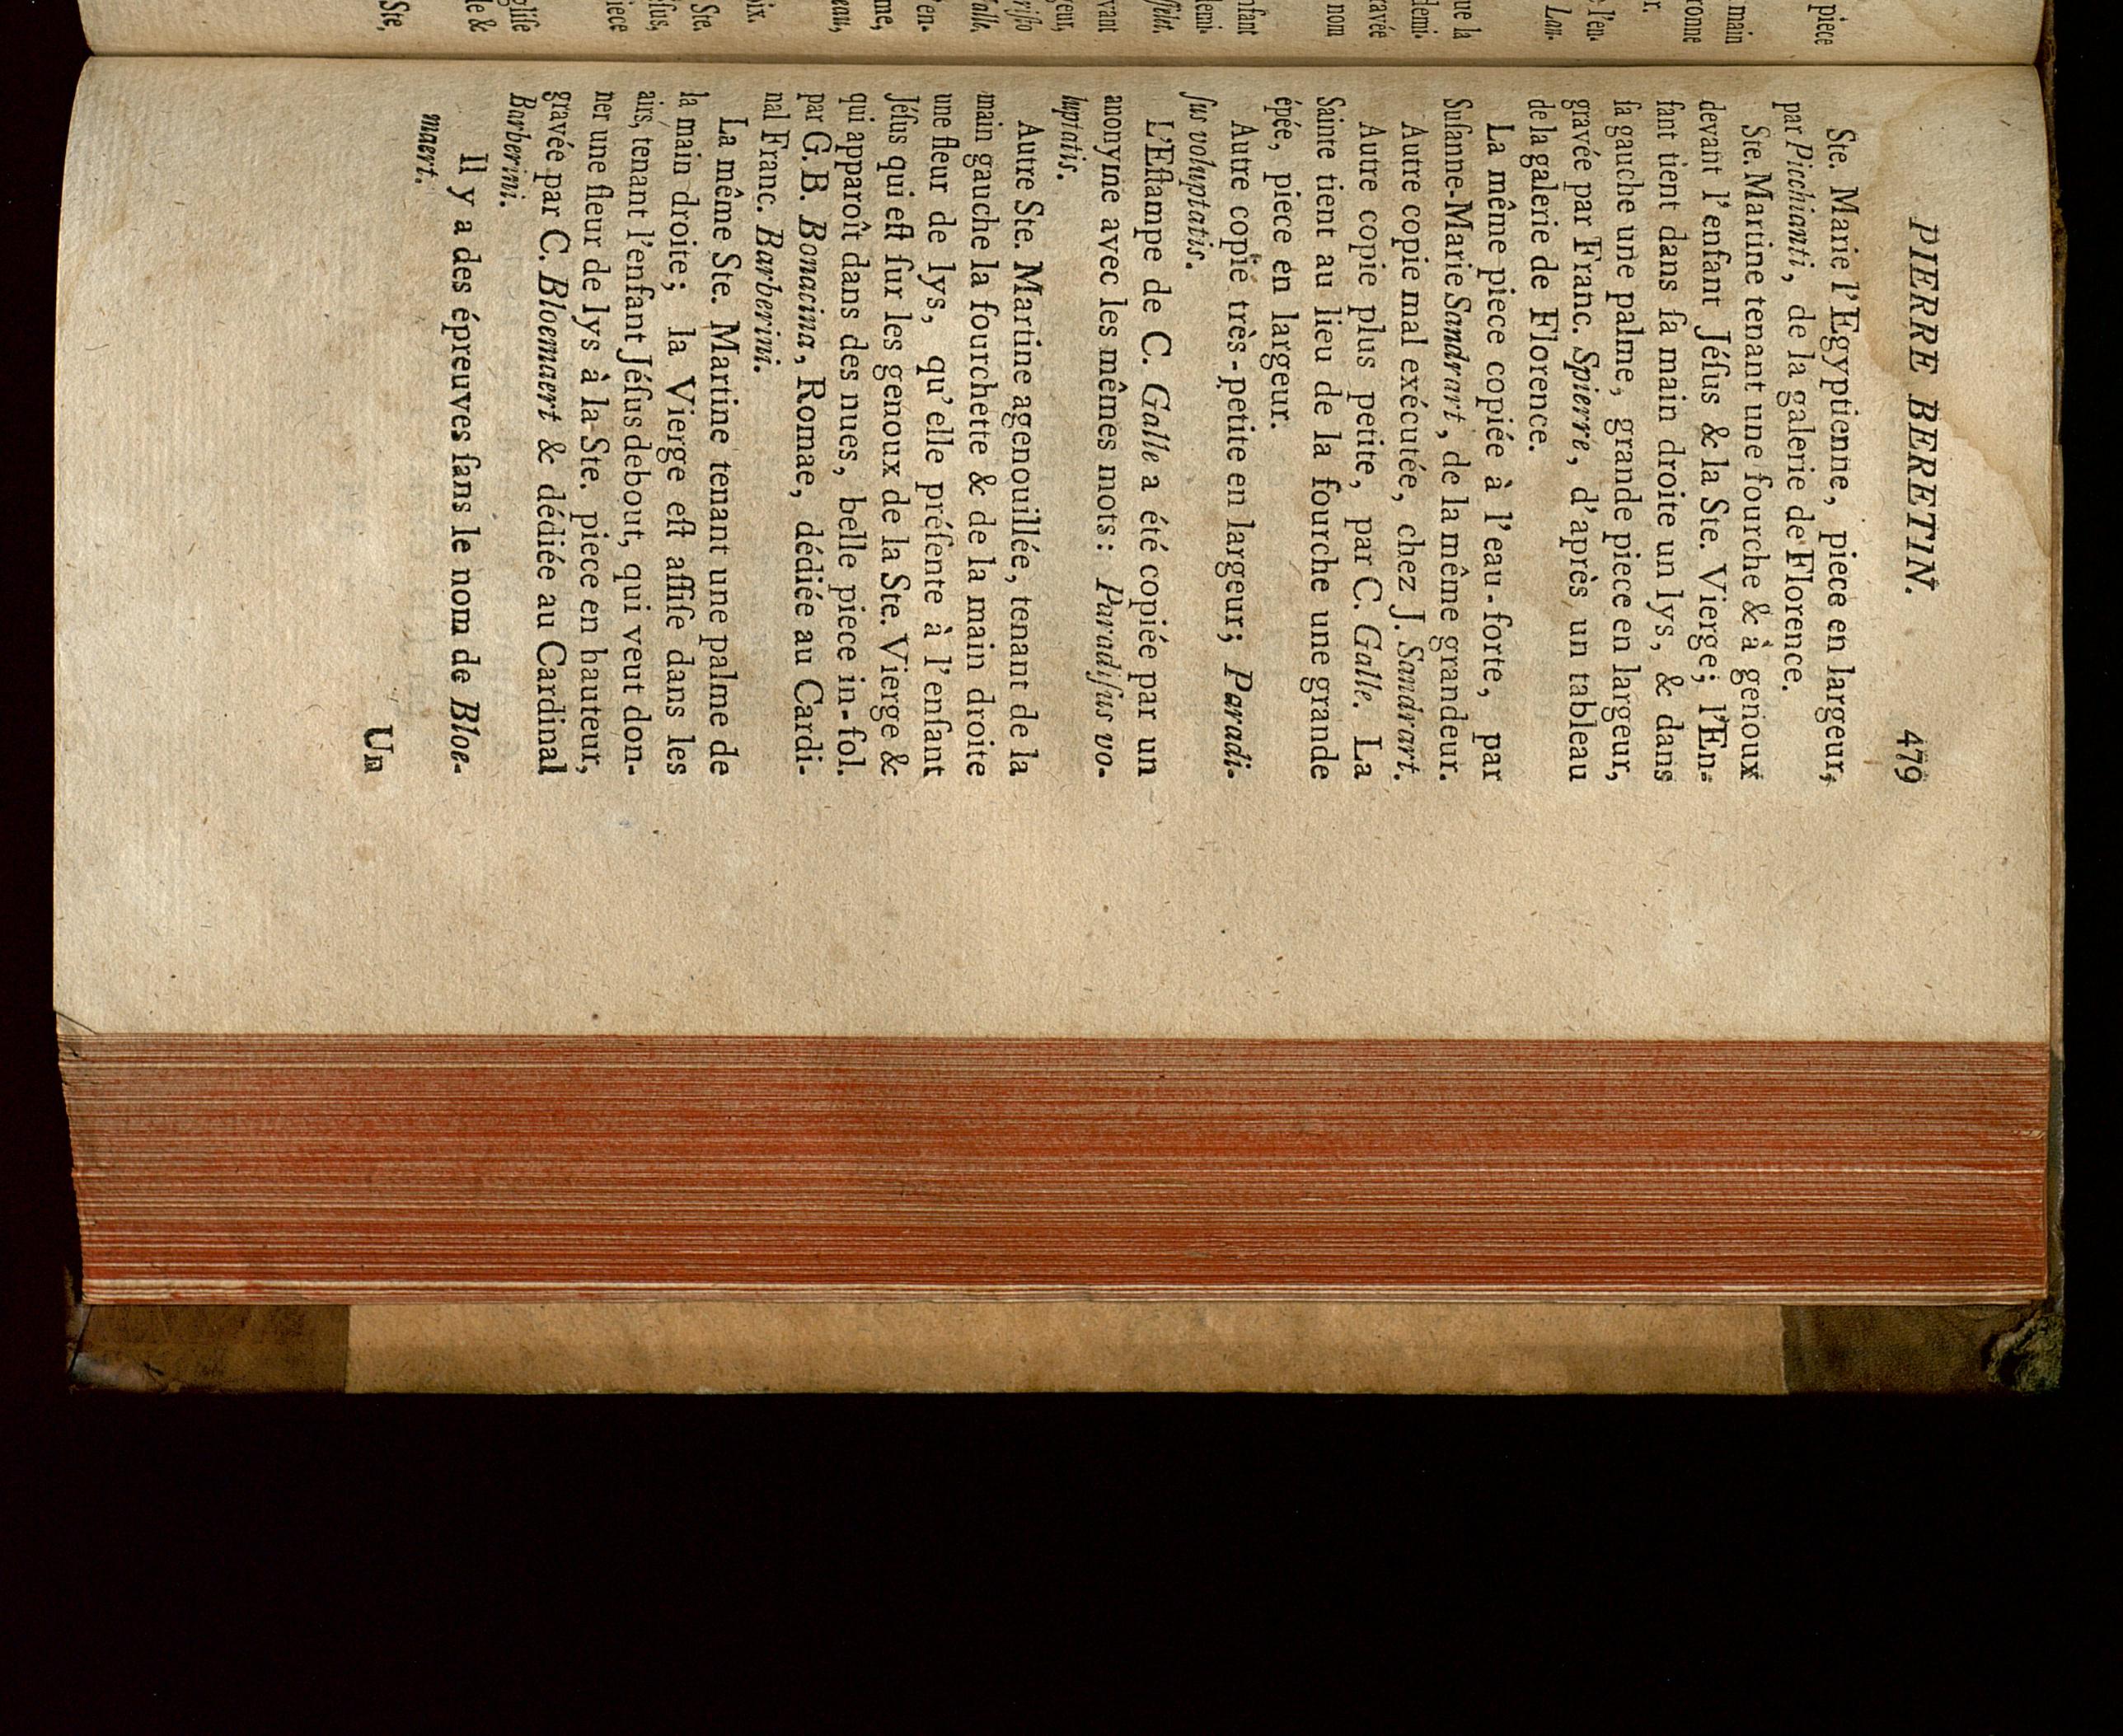 PIERRE BERETIN. 479
Ste. Marie l'Egyptienne, piece en largeur,
par Picchianti, de la galerie de Florence.
Ste. Martine tenant une fourche & à genoux
devant l'enfant Jéſus & la Ste. Vierge; l'En-
fant tient dans ſa main droite un lys, & dans
ſa gauche une palme, grande piece en largeur,
gravée par Franc. Spierre, d'après un tableau
de la galerie de Florence.
La même piece copiée à l'eau-forte, par
Suſanne-Marie Sandrart, de la même grandeur.
Autre copie mal exécutée, chez J. Sandrart.
Autre copie plus petite, par C. Galle. La
Sainte tient au lieu de la fourche une grande
épée, piece en largeur.
Autre copie très-petite en largeur; Paradi-
ſus voluptatis.
L'Eſtampe de C. Galle a été copiée par un
anonyme avec les mêmes mots: Paradiſus vo-
luptatis.
Autre Ste. Martine agenouillée, tenant de la
main gauche la fourchette & de la main droite
une fleur de lys, qu'elle préſente à l'enfant
Jéſus qui eſt ſur les genoux de la Ste. Vierge &
qui apparoît dans des nues, belle piece in-fol.
par G. B. Bonacina, Romae, dédiée au Cardi-
nal Franc. Barberini.
La même Ste. Martine tenant une palme de
la main droite; la Vierge eſt aſſiſe dans les
airs, tenant l'enfant Jéſus debout, qui veut don-
ner une fleur de lys à la Ste. piece en hauteur,
gravée par C. Bloemaert & dédiée au Cardinal
Barberini.
Il y a des épreuves ſans le nom de Bloe-
maert.
Un